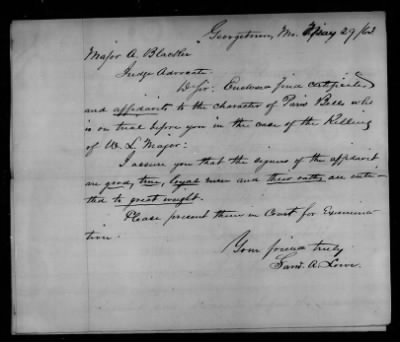 Georgetown, Mo. May 29/62
Major A. Blackler
Judge Advocate.
D Sir: Enclosed find certificates
and affidavits to the character of Paris Bass who
is on trial before you in the case of the Killing
of W. L. Major:
I assure you that the signers of the affidavit
are good, true, loyal men and their oaths are enti-
tled to great weight.
Please present them in Court for Examina
tion.
Your friend truly
Saml. A. Lowe.